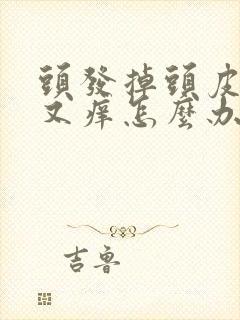 頭發掉頭皮
又痒怎麼办
吉鲁